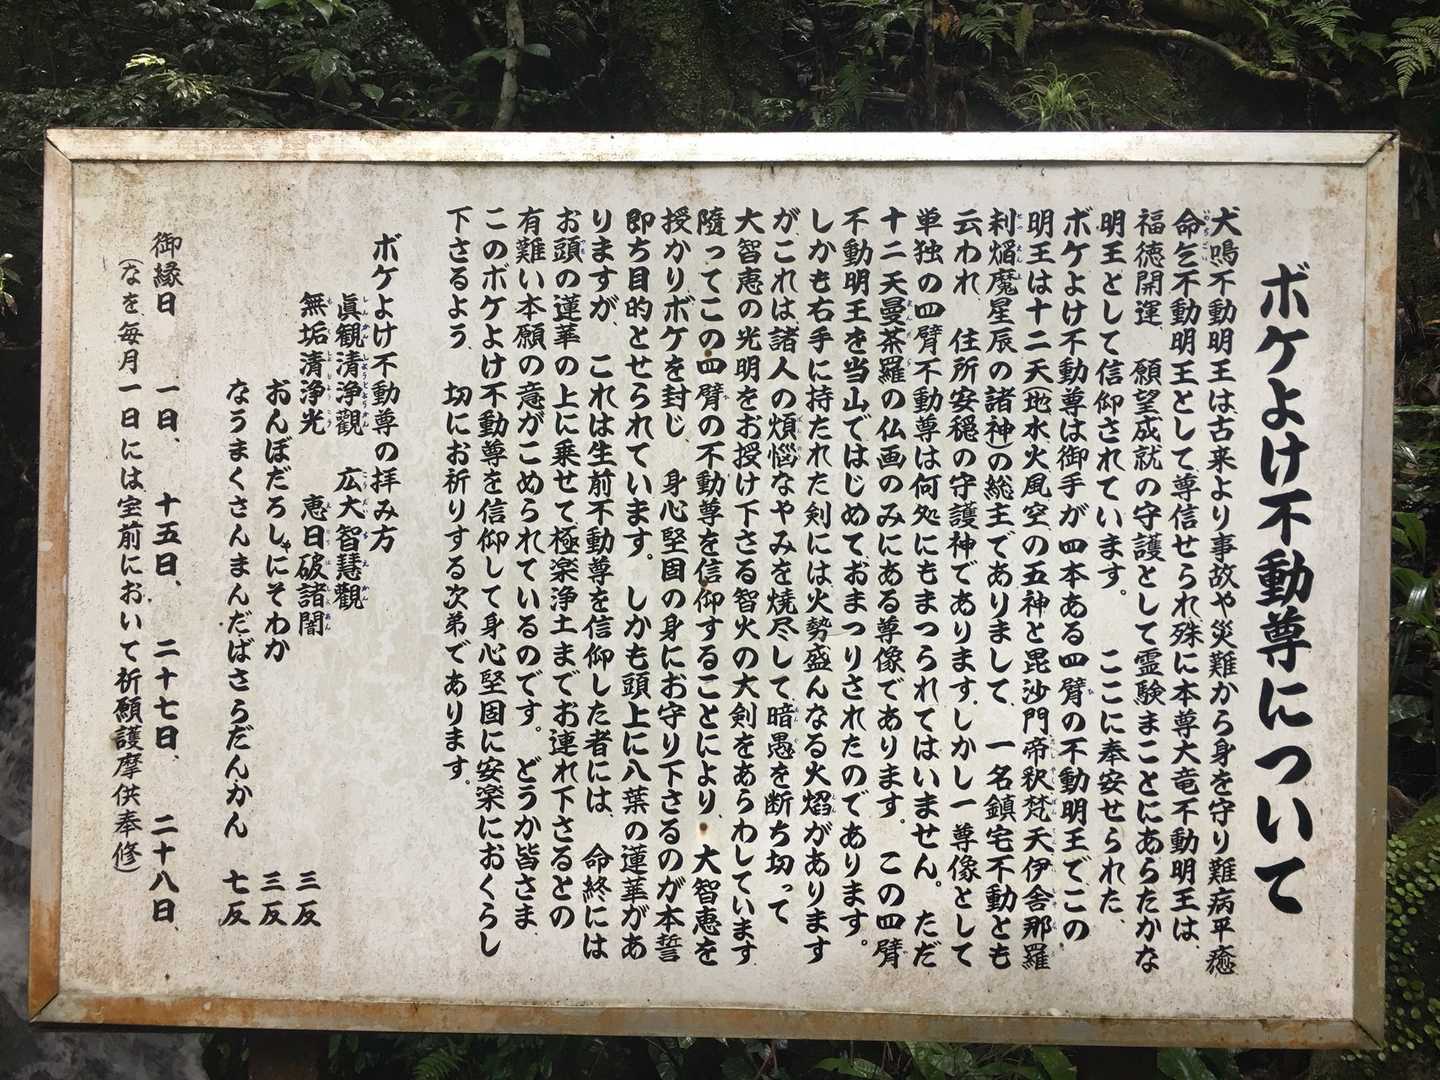 ボケよけ不動尊について
犬鳴不動明王は古来より事故や災難から身を守り難病平癒
命乞不動明王として尊信せられ殊に本尊大竜不動明王は、
福徳開運　願望成就の守護として霊験まことにあらたかな
明王として信仰されています。　ここに奉安せられた、
ボケよけ不動尊は御手が四本ある四臂の不動明王でこの
明王は十二天(地水火風空の五神と毘沙門帝釈梵天伊舎那羅
刹焔魔星辰の諸神)の総主でありまして、一名鎮宅不動とも
云われ、住所安穏の守護神であります。しかし一尊像として
単独の四臂不動尊は何処にもまつられてはいません。ただ
十二天曼荼羅の仏画のみにある尊像であります。この四臂
不動明王を当山ではじめておまつりされたのであります。
しかも右手に持たれた剣には火勢盛んなる火焰があります
がこれは諸人の煩悩なやみを焼尽して、暗愚を断ち切って
大智恵の光明をお授け下さる智火の大剣をあらわしています
隨ってこの四臂の不動尊を信仰することにより、大智恵を
授かりボケを封じ、身心堅固の身にお守り下さるのが本誓
即ち目的とせられています。しかも頭上に八葉の蓮華があ
りますが、これは生前不動尊を信仰した者には、命終には
お頭の蓮華の上に乗せて極楽浄土までお連れ下さるとの
有難い本願の意がこめられているのです。どうか皆さま、
このボケよけ不動尊を信仰して身心堅固に安楽におくらし
下さるよう　切にお祈りする次第であります。
ボケよけ不動尊の拝み方
眞観清浄觀　広大智慧觀
無垢清浄光　恵日破諸闇　三反
おんぼだろしゃにそわか　三反
なうまくさんまんだばさらだんかん　七反
御縁日　一日、十五日、二十七日、二十八日、
(なを毎月一日には宝前において祈願護摩供奉修)